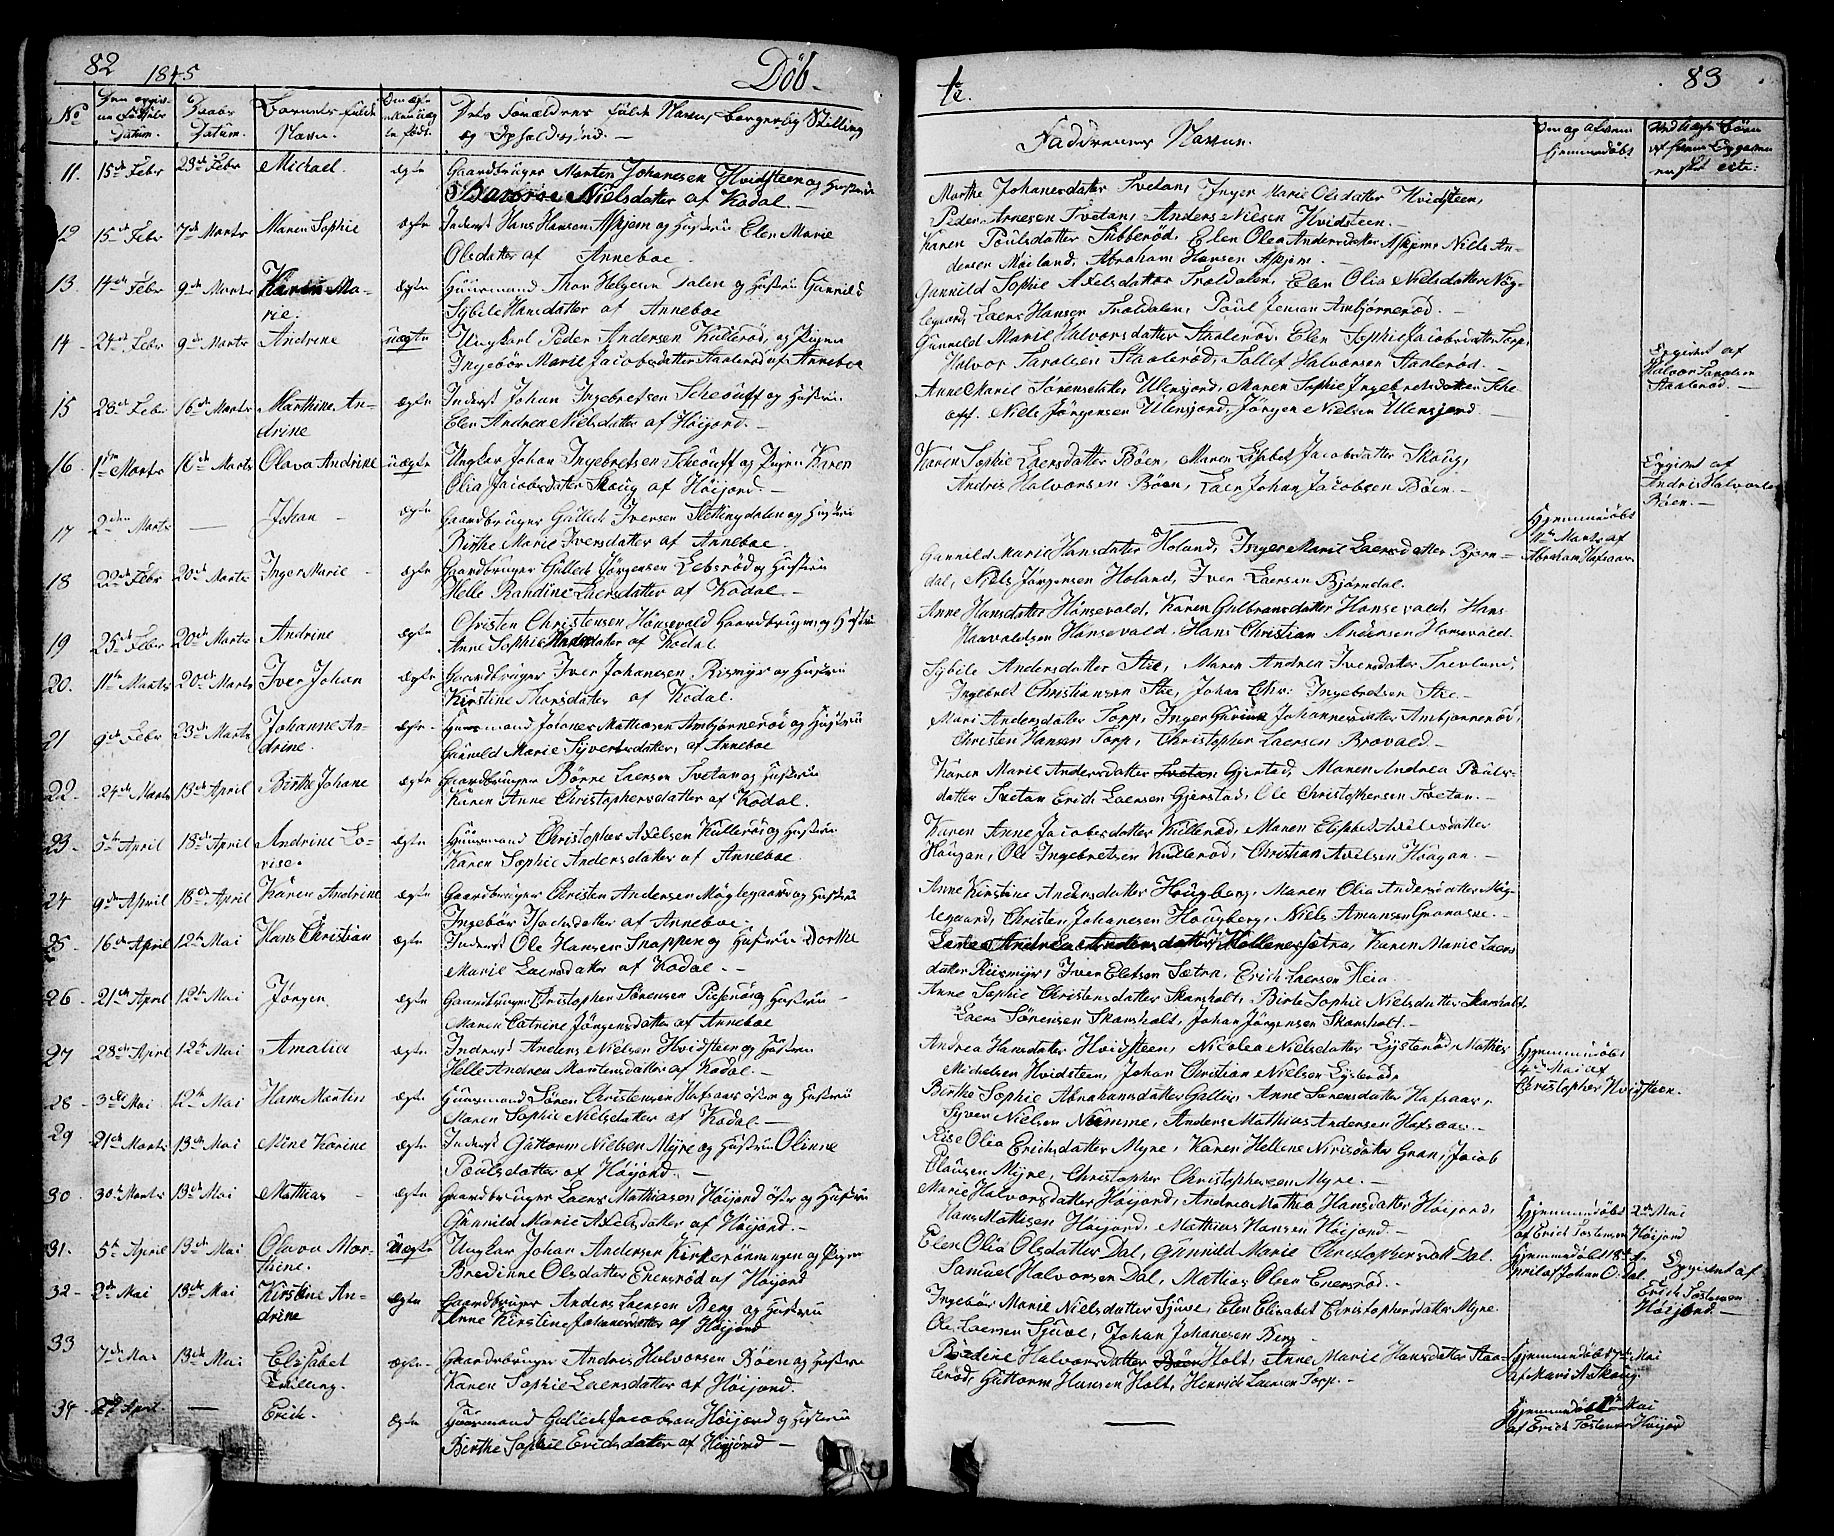 82 1845 Döb-
No
Den opgivne Fødsels Datum.
Daabs Datum.
Barnets fulde Navn.
Om ægte eller uægte født.
Dets Forældres fulde Navn, borgerlig Stilling
og Opholdssted. —
11. 15de Febr 23de Febr Michael. ægte Gaardbruger Morten Johanesen Hvidsteen og Hustrue
Nielsdatter af Kodal. —
12 15de Febr 7de Marts Maren Sophie ægte Inderst Hans Hansen Askjem og Hustrue Elen Marie
Olsdatter af Anneboe —
13. 14de Febr 9de Marts Karen Marie. ægte Huusmand Thor Helgesen Dalen og Hustrue Gunnild
Sybile Hansdatter af Anneboe
14 - 24de Febr 9de Marts Andrine uægte Ungkarl Peder Andersen Kullerød, og Pigen
Ingebør Marie Jacobsdatter Staalerød af Anneboe
15 28de Febr 16de Marts Marthine Andrine ægte Inderst Johan Ingebretsen Scheouff og Hustrue
Elen Andrea Nielsdatter af Höijord. —
16. 1ste Marts 16de Marts Olava Andrine uægte Ungkar Johan Ingebretsen Scheouff og Pigen Karen
Olia Jacobsdatter Skoug af Höijord. —
17 2den Marts — Johan - ægte Gaardbruger Gullech Iversen Slettingdalen og Hustrue
Birthe Marie Iversdatter af Anneboe.
18 22de Febr 20de Marts Inger Marie - ægte Gaardbruger Gullech Jörgensen Lebsrød og Hustrue
Helle Randine Laersdatter af Kodal. —
19 25de Febr 20de Marts Andrine ægte Christen Christensen Hönsevald Gaardbruger og Hustrue
Anne Sophie datter af Kodal
20. 11te Marts 20de Marts Iver Johan ægte Gaardbruger Iver Johanesen Rismyr og Hustrue
Kirstine Thorsdatter af Kodal.
21 9de Febr 23de Marts Johanne Andrine. ægte - Huusmand Johanes Mathiasen Ambjørnerød og Hustrue
Gunild Marie Syvertsdatter, af Anneboe
22. 24de Marts 13de April Birthe Johane ægte Gaardbruger Börre Laersen Tvetan og Hustrue
Karen Anne Christophersdatter af Kodal.
23. 5te April 18de April Andrine Lovise. ægte Huusmand Christopher Axelsen Kullerød og Hustrue
Karen Sophie Andersdatter af Anneboe.
24 9de April 18de April Karen Andrine ægte Gaardbruger Christen Andersen Möglegaard og Hustrue
Ingebör Isacksdatter af Anneboe.
25. 16de April 12te Mai Hans Christian ægte Inderst Ole Hansen Trappen og Hustrue Dorthe
Marie Laersdatter af Kodal. -
26 - 21de April 12te Mai Jörgen ægte Gaardbruger Christopher Sörensen og Hustrue —
Maren Catrine Jörgensdatter af Anneboe
27 28de April 12te Mai Amalia ægte Inderst Anders Nielsen Hvidsteen og Hustrue
Helle Andrea Mortensdatter af Kodal. —
28 - 3die Mai 12te Mai Hans Martin ægte Huusmand Sören Christensen Hafsaas öster og Hustrue
Maren Sophie Nielsdatter af Kodal —
29 21de Marts 13de Mai Mine Karine ægte Inderst Guttorm Nielsen Myre og Hustrue Olinne
Poulsdatter af Höijord. —
30. 30te Marts 13de Mai Mathias ægte Gaardbruger Laers Mathiasen Höijord öster og Hustrue
Gunnild Marie Axelsdatter af Höijord. —
31. 5te April 13de Mai Olava Marthine. uægte Ungkar Johan Andersen Kirkerönningen og Pigen
Bredinne Olsdatter Enersrød af Höijord
32- 2den Mai 13de Mai Kirstine Andrine ægte Gaardbruger Anders Laersen Berg og Hustrue
Anne Kirstine Johanesdatter af Höijord
33 7de Mai 13de Mai Elisabet ægte- Gaardbruger Andris Halvorsen Böen og Hustrue
Tvilling. Karen Sophie Laersdatter af Höijord.
34 - April — Erich. ægte Huusmand Gullich Jacobsen Höijord og Hustrue
Birthe Sophie Erichsdatter af Höijord —
te. 83
Faddrenes Navne.
Om og af hvem hjemmedöbt
Ved uægte Börn
af hvem Opgaven
er skeet etc:
Marthe Johanesdatter Tvetan, Inger Marie Olsdatter Hvidsteen,
Peder Arnesen Tvetan, Anders Nielsen Hvidsteen.
Karen Poulsdatter Tubberød, Elen Olea Andersdatter Askjem, Niels An-
dersen Möiland, Abraham Hansen Askjem. —
Gunnild Sophie Axelsdatter Troldalen, Elen Olia Nielsdatter Nög-
legaard, Laers Hansen Troldalen, Poul Jensen Ambjørnerød. —
Gunnild Marie Halvorsdatter Staalerød, Elen Sophie Jacobsdatter Torp,
Halvor Taralsen Staalerød, Tollef Halvorsen Staalerød. —
Opgivet af
Halvor Taralsen
Staalerød. —
Anne Marie Sörensdatter Ulensjord, Maren Sophie Ingebretsdatter Sche-
off. Niels Jörgensen Ulensjord, Jörgen Nielsen Ulensjord. —
Karen Sophie Laersdatter Böen, Maren Lisbet Jacobsdatter Skoug,
Andris Halvorsen Böen, Laer Johan Jacobsen Böen. —
Opgivet af
Andris Halvorsen
Böen. —
Hjemmedöbt
11te Marts af
Abraham Hafsaas.
Gunnild Marie Hansdatter Holand, Inger Marie Laersdatter Bjørn-
dal, Niels Jörgensen Holand, Iver Laersen Bjørndal.
Anne Hansdatter Hönsevald, Karen Gulbransdatter Hönsevald, Hans
Haavaldsen Hönsevald. Hans Christian Andersen Hönsevald.
Sybile Andersdatter Skee, Maren Andrea Iversdatter Trevland,
Ingebret Christiansen Ske, Johan Chr: Ingebretsen Ske —
Mari Andersdatter Torp, Inger Johannesdatter Ambjørnerød,
Christen Hansen Torp, Christopher Laersen Brovald —
Karen Marie Andersdatter Tvetan Gjerstad, Maren Andrea Pouls-
datter Tvetan Erich Laersen Gjerstad, Ole Christophersen Tvetan. —
Karen Anne Jacobsdatter Kullerød, Maren Elisabet Axelsdatter
Hougan, Ole Ingebretsen Kullerød, Christian Axelsen Hougan. —
Anne Kirstine Andersdatter Hougberg, Maren Olia Andersdatter Mög-
legaard, Christen Johanesen Hougberg, Niels Amunsen Granaasne. —
Andrea Andersdatter Möllenessætra, Karen Marie Laers-
datter Riismyr, Iver Elefsen Sætra, Erich Laersen Heia.
Anne Sophie Christensdatter Skarsholt, Birte Sophie Nielsdatter Skarsholt
Laers Sörensen Skarsholt, Johan Jörgensen Skarsholt. —
Andrea Hansdatter Hvidsteen, Nicolea Nielsdatter Lysterød, Mathis
Michelsen Hvidsteen, Johan Christian Nielsen Lysterød.
Hjemmedöbt
4de Mai af
Christopher Hvidsteen.
Birthe Sophie Abrahamsdatter Gallis, Anne Sörensdatter Hafsaas,
Syver Nielsen Nömme, Anders Mathias Andersen Hafsaas. —
Rise Olia Erichsdatter Myre, Karen Hellene Nirisdatter Gran, Jacob
Clausen Myre, Christopher Christophersen Myre. —
Marie Halvorsdatter Höijord, Andrea Mathea Hansdatter Höijord,
Hans Mattisen Höijord, Mathias Hansen Höijord. —
Hjemmedöbt 2den Mai
af Erich Tostensen Höijord
Elen Olia Olsdatter Dal, Gunnild Marie Christophersdatt Dal.
Samuel Halvorsen Dal, Mathias Olsen Enersrød. —
Hjemmedöbt 18de A-
pril af Johan O. Dal.
Opgivet af
Erich Tostensen
Höijord. —
Ingebör Marie Nielsdatter Sjuve, Elen Elisabet Christophersdatter Myre
Ole Laersen Sjuve, Johan Johanesen Berg —
Bredine Halvorsdatter Böen Holt, Anne Marie Hansdatter Staa-
lerød, Guttorm Hansen Holt, Henrich Laersen Torp. —
Hjemmedöbt 7de Mai
af Mari A. Skoug.
Hjemmedöbt Mai
af Erich Tostensen Höijord